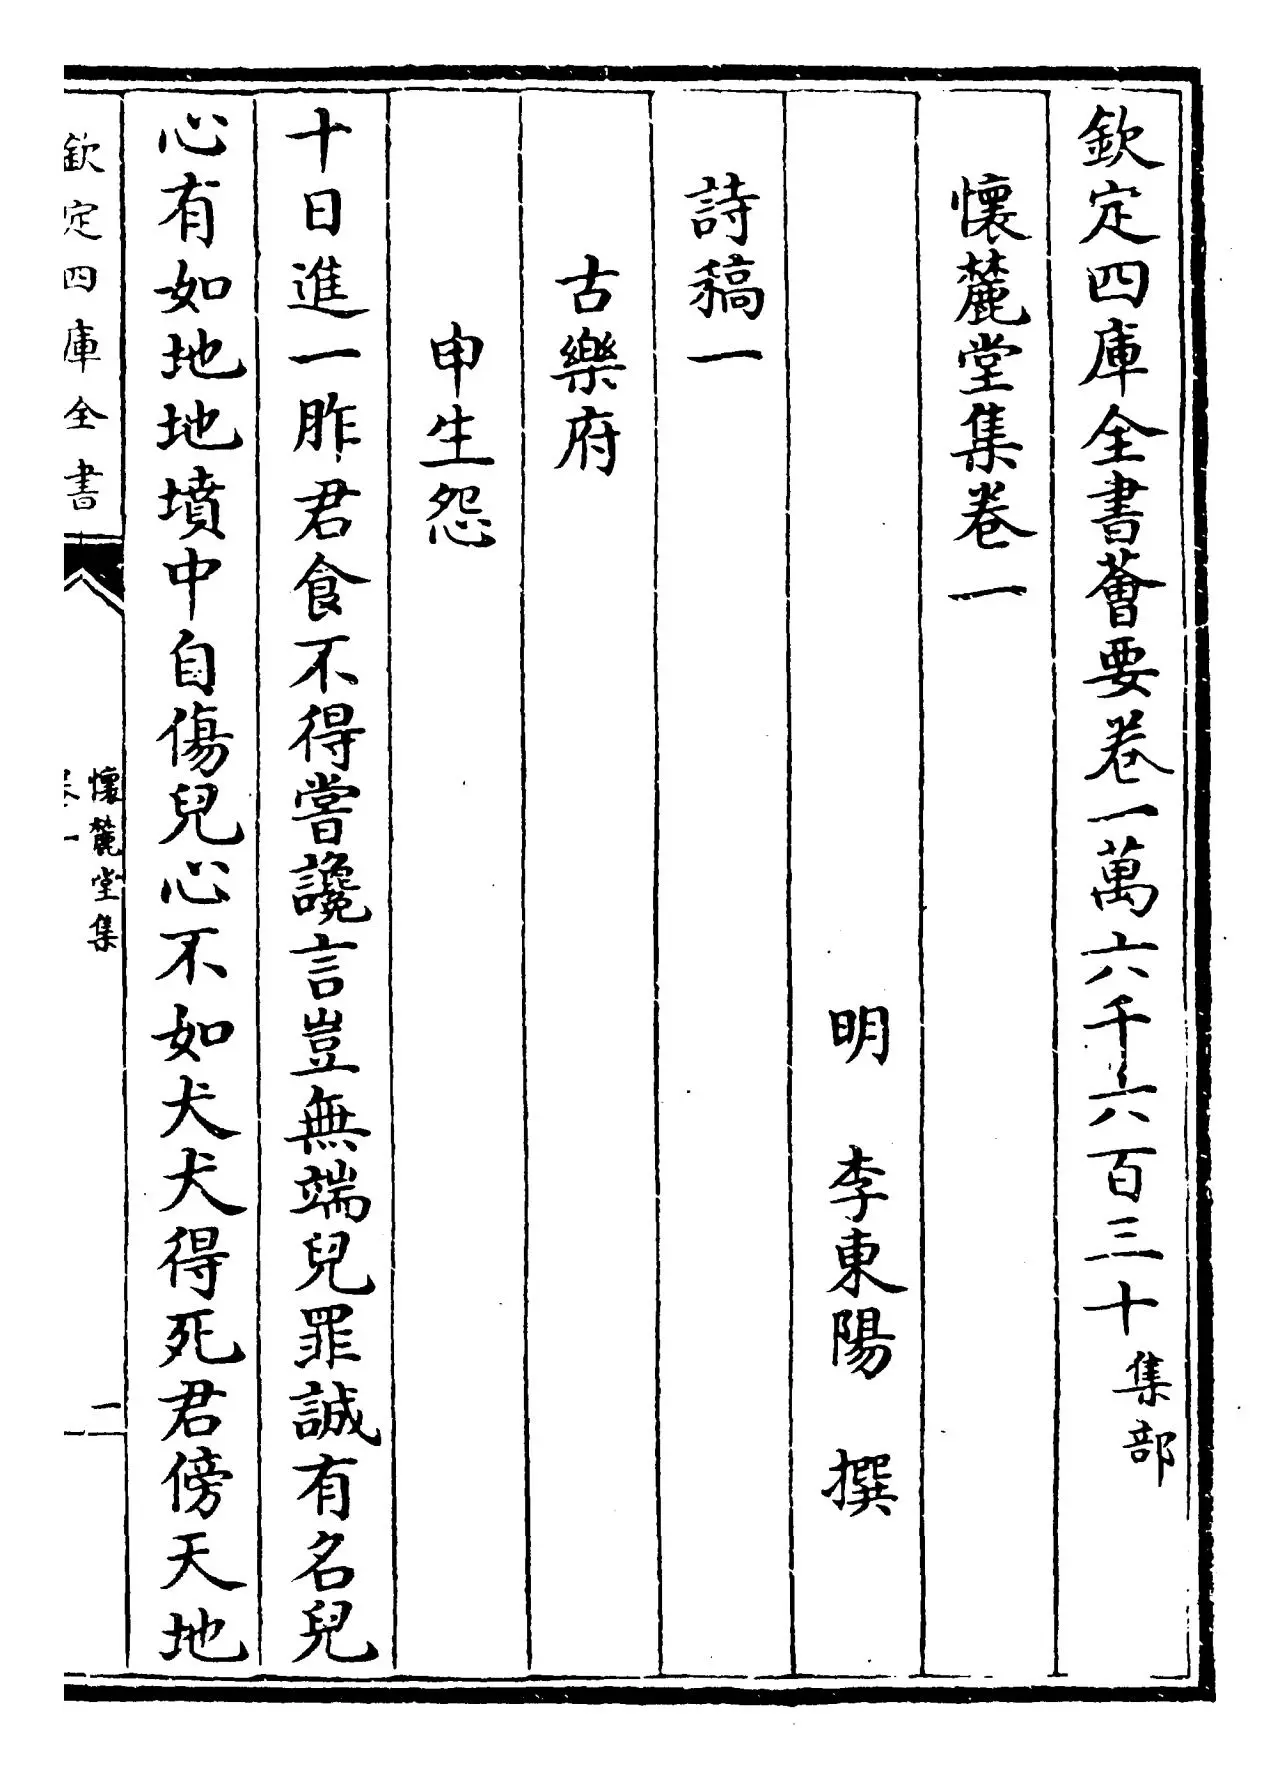 欽定四庫全書薈要卷一萬六千六百三十集部
懷麓堂集卷一
明　李東陽　撰
詩稿一
古樂府
申生怨
十日進一胙君食不得嘗讒言豈無端兒罪誠有名兒
心有如地地墳中自傷兒心不如犬犬得死君傍天地
欽定四庫全書
懷麓堂集
卷一
一